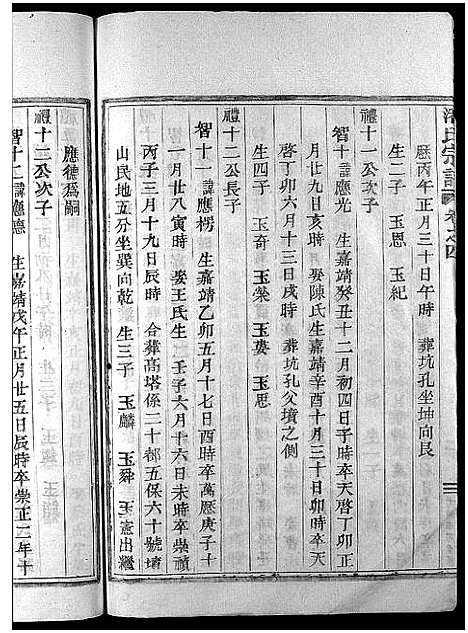 氏宗譜 卷之四
歷丙午正月三十日午時 葬坑孔坐坤向艮
生二子 玉恩 玉紀
禮十一公次子
智十 諱應光 生嘉靖癸丑十二月初四日子時卒天啓丁卯正
月廿九日亥時 娶陳氏生嘉靖辛酉十月三十日卯時卒天
啓丁卯六月十三日戌時 葬坑孔父墳之側
生四子 玉奇 玉榮 玉婁 玉思
禮十二公長子
智十一 諱應楞 生嘉靖乙卯五月十七日酉時卒萬歷庚子十
一月廿八寅時 娶王氏生 壬子六月十六日未時卒崇禎
丙子三月十九日辰時 合葬高塔係二十都五保六十號墳
山民地五分坐巽向乾 生三子 玉麟 玉舜 玉憲出繼
應德爲嗣
禮十二公次子
智十二 諱應應 生嘉靖戊午正月廿五日辰時卒崇正二年十